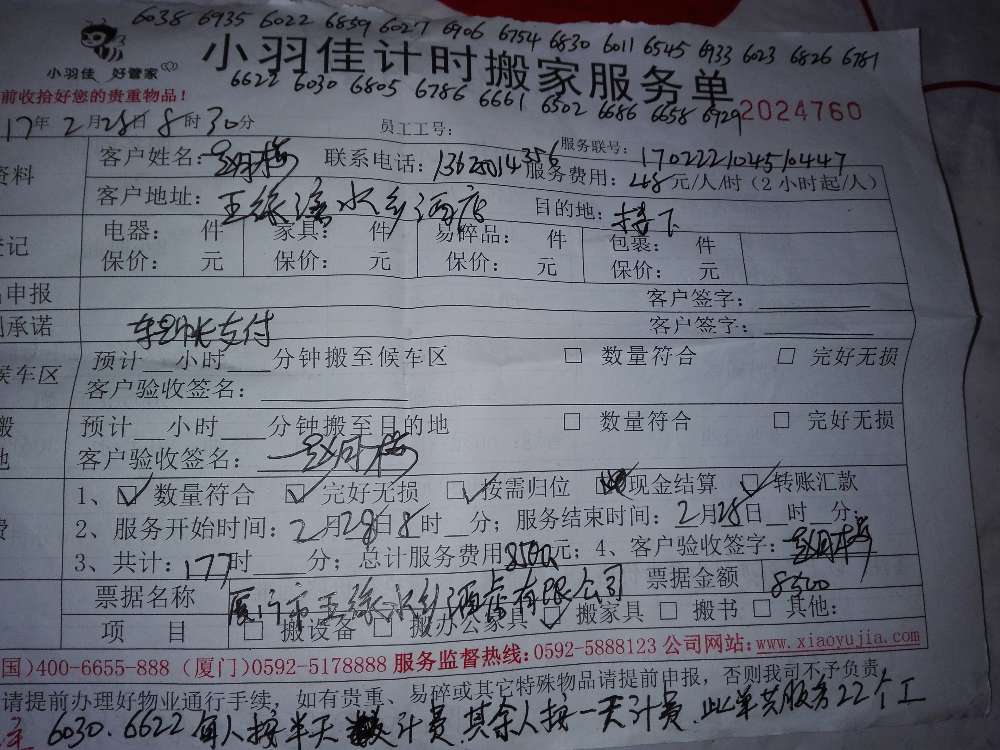 6038 6935 6022 6859 6027 6906 6754 6830 6011 6545 6933 6023 6826 6781
小羽佳计时搬家服务单
小羽佳 好管家
6622 6030 6805 6786 6661 6502 6686 6658 6929
2024760
前收拾好您的贵重物品!
17年2月28日8时30分 员工工号:
资料 客户姓名: 联系电话:13620014356 服务联号:17022221045 10447
服务费用:48元/人/时(2小时起/人)
客户地址: 水乡酒店 目的地:楼下
登记 电器: 件 家具: 件 易碎品: 件 包裹: 件
保价: 元 保价: 元 保价: 元 保价: 元
申报 客户签字:
承诺 支付 客户签字:
候车区 预计 小时 分钟搬至候车区 □ 数量符合 □ 完好无损
客户验收签名:
搬 预计 小时 分钟搬至目的地 □ 数量符合 □ 完好无损
地 客户验收签名:
1、☑ 数量符合 ☑ 完好无损 ☑ 按需归位 现金结算 ☑ 转账汇款
费 2、服务开始时间:2月28日8时 分;服务结束时间:2月28日 时 分;
3、共计:177时 分;总计服务费用8500元;4、客户验收签字:
票据名称 厦门市五缘水乡酒店有限公司 票据金额 8500
项 目 □ 搬设备 □ 搬办公家具 ☑ 搬家具 □ 搬书 □ 其他:
国)400-6655-888 (厦门)0592-5178888 服务监督热线:0592-5888123 公司网站:www.xiaoyujia.com
请提前办理好物业通行手续,如有贵重、易碎或其它特殊物品请提前申报,否则我司不予负责,
6030、6622每人按半天计员,其余人按一天计员,此单共服务22个工